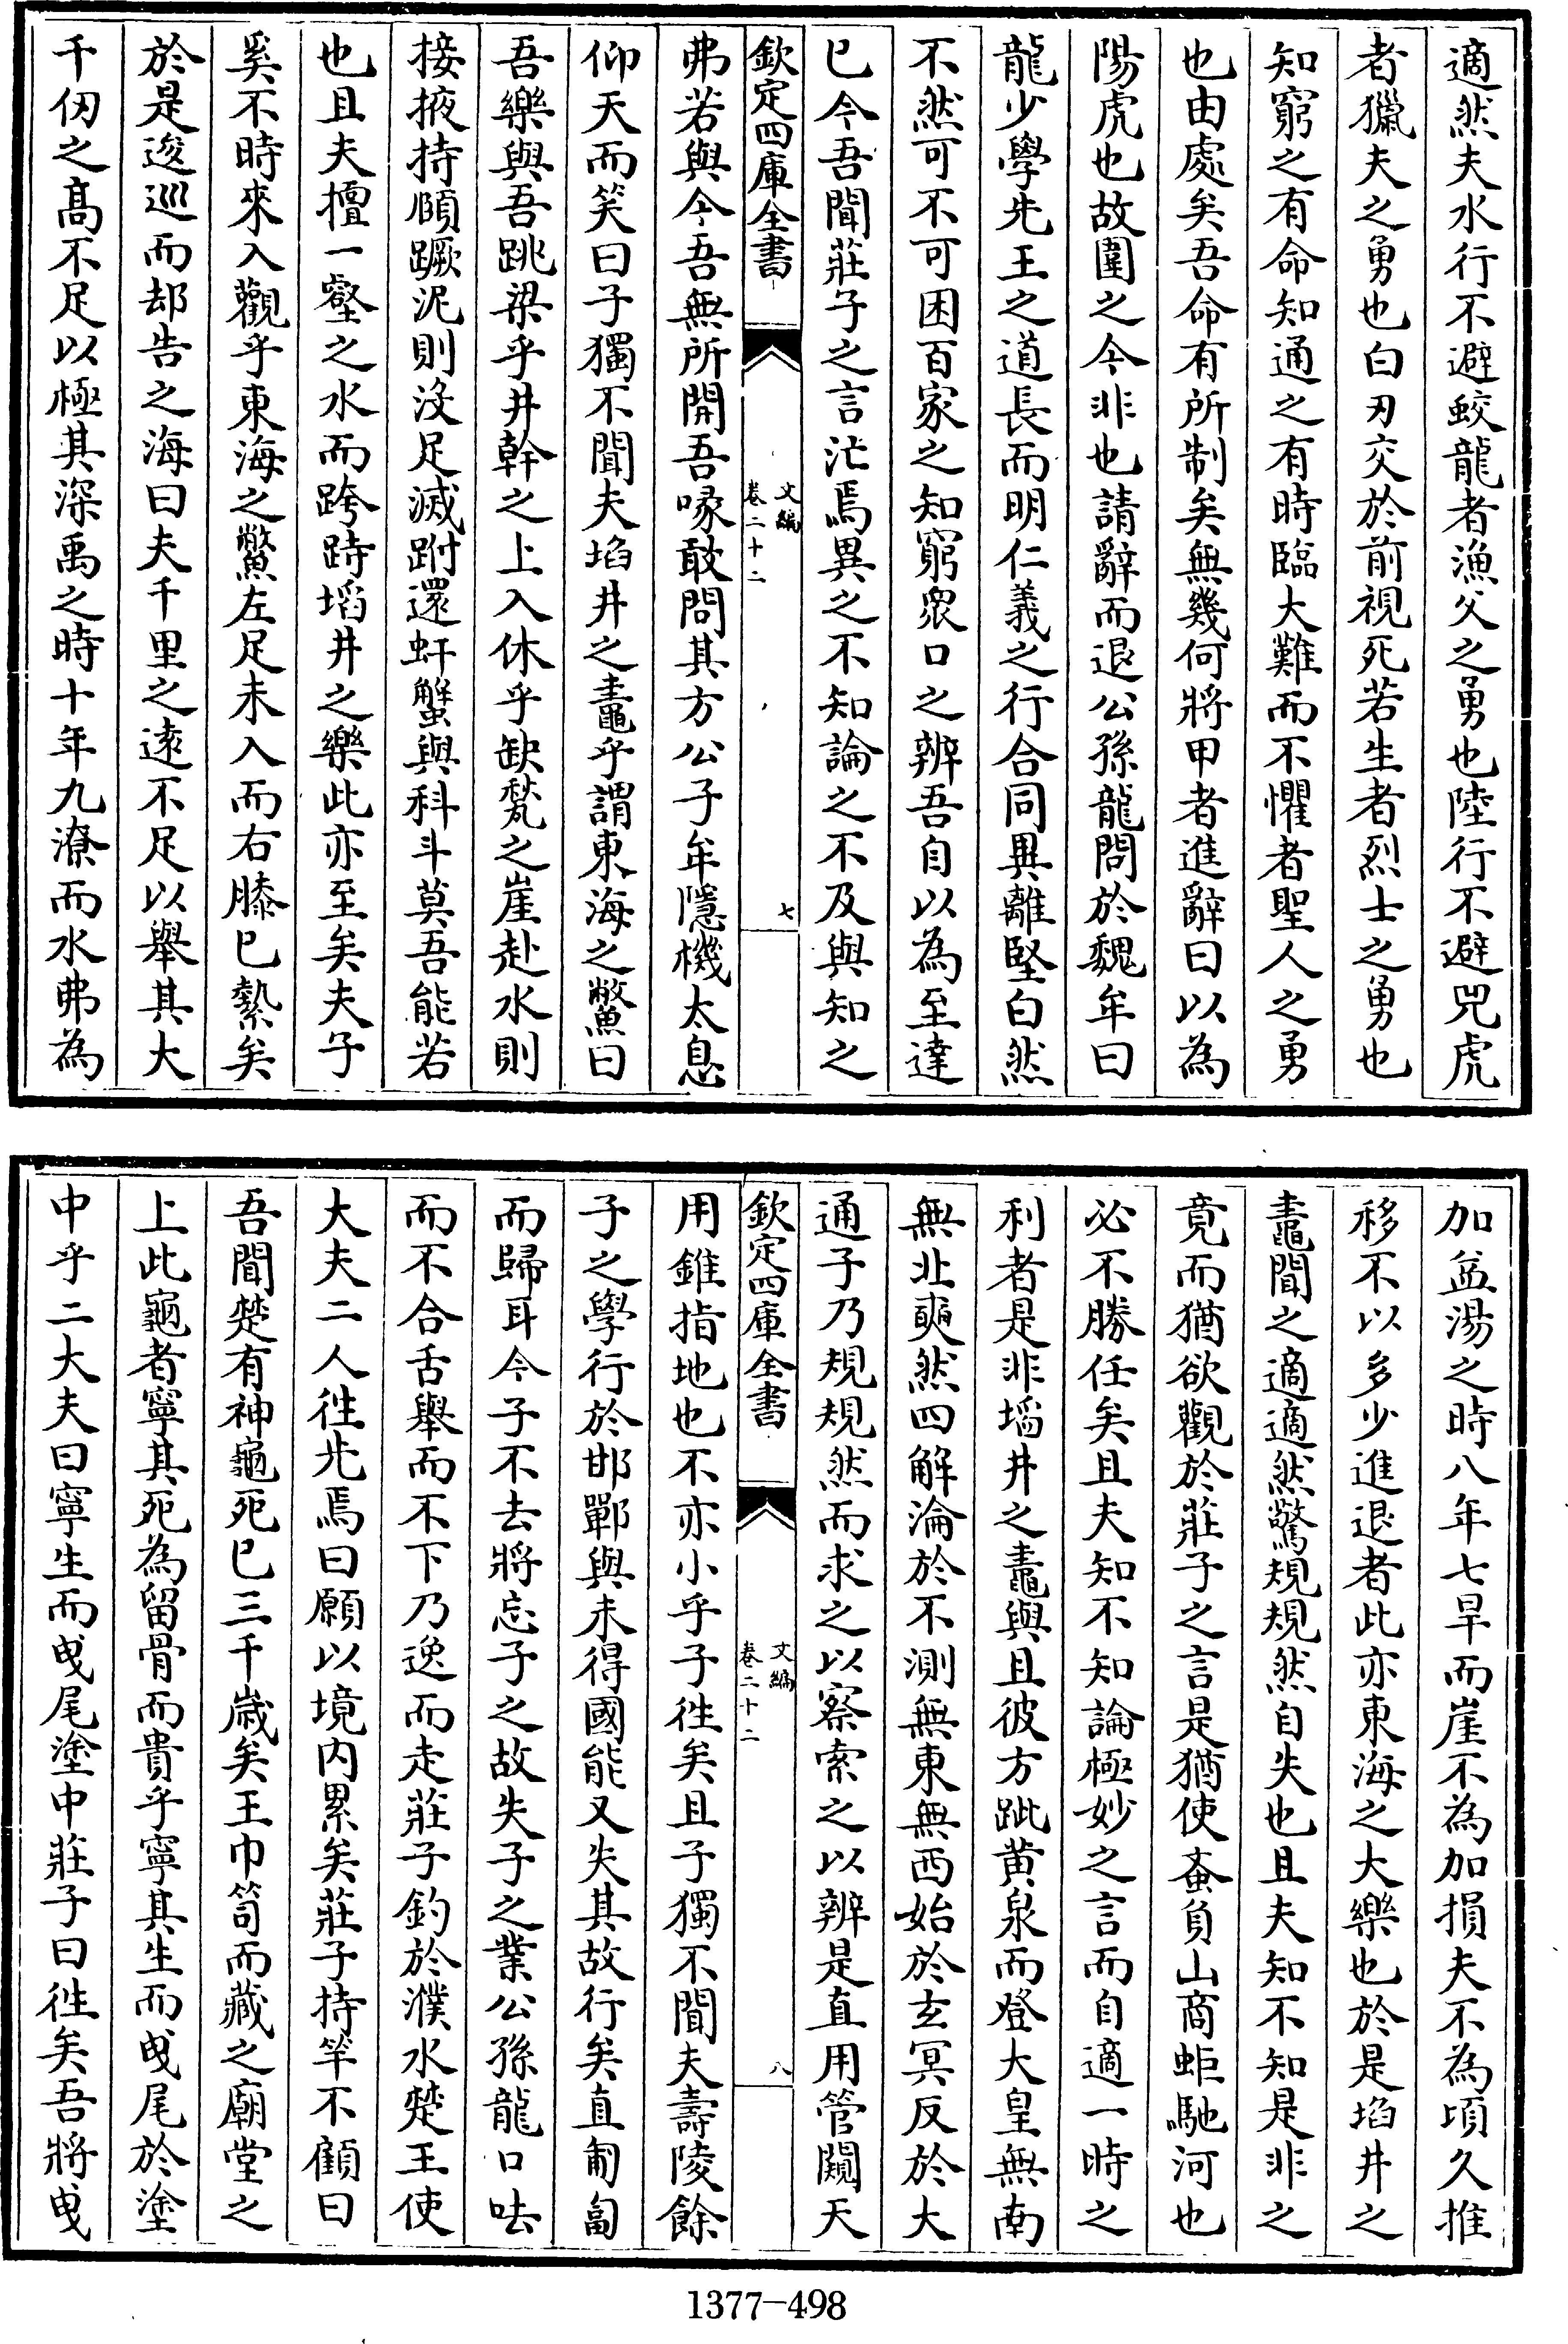 適然夫水行不避蛟龍者漁父之勇也陸行不避兕虎
者獵夫之勇也白刃交於前視死若生者烈士之勇也
知窮之有命知通之有時臨大難而不懼者聖人之勇
也由處矣吾命有所制矣無幾何將甲者進辭曰以為
陽虎也故圍之今非也請辭而退公孫龍問於魏牟曰
龍少學先王之道長而明仁義之行合同異離堅白然
不然可不可困百家之知窮衆口之辨吾自以為至達
已今吾聞莊子之言汒焉異之不知論之不及與知之
欽定四庫全書
文編
卷二十二
七
弗若與今吾無所開吾喙敢問其方公子牟隱機太息
仰天而笑曰子獨不聞夫埳井之鼃乎謂東海之鱉曰
吾樂與吾跳梁乎井幹之上入休乎缺甃之崖赴水則
接掖持頤蹶泥則沒足滅跗還虷蟹與科斗莫吾能若
也且夫擅一壑之水而跨跱埳井之樂此亦至矣夫子
奚不時來入觀乎東海之鱉左足未入而右膝已縶矣
於是逡巡而却告之海曰夫千里之逺不足以舉其大
千仞之髙不足以極其深禹之時十年九潦而水弗為
加益湯之時八年七旱而崖不為加損夫不為頃久推
移不以多少進退者此亦東海之大樂也於是埳井之
鼃聞之適適然驚規規然自失也且夫知不知是非之
竟而猶欲觀於莊子之言是猶使蚉負山商蚷馳河也
必不勝任矣且夫知不知論極妙之言而自適一時之
利者是非埳井之鼃與且彼方跐黄泉而登大皇無南
無北奭然四解淪於不測無東無西始於玄冥反於大
通子乃規規然而求之以察索之以辨是直用管闚天
欽定四庫全書
文編
卷二十二
八
用錐指地也不亦小乎子徃矣且子獨不聞夫壽陵餘
子之學行於邯鄲與未得國能又失其故行矣直匍匐
而歸耳今子不去將忘子之故失子之業公孫龍口呿
而不合舌舉而不下乃逸而走莊子釣於濮水楚王使
大夫二人徃先焉曰願以境内累矣莊子持竿不顧曰
吾聞楚有神龜死已三千歲矣王巾笥而藏之廟堂之
上此龜者寧其死為留骨而貴乎寧其生而曵尾於塗
中乎二大夫曰寧生而曵尾塗中莊子曰徃矣吾將曵
1377-498